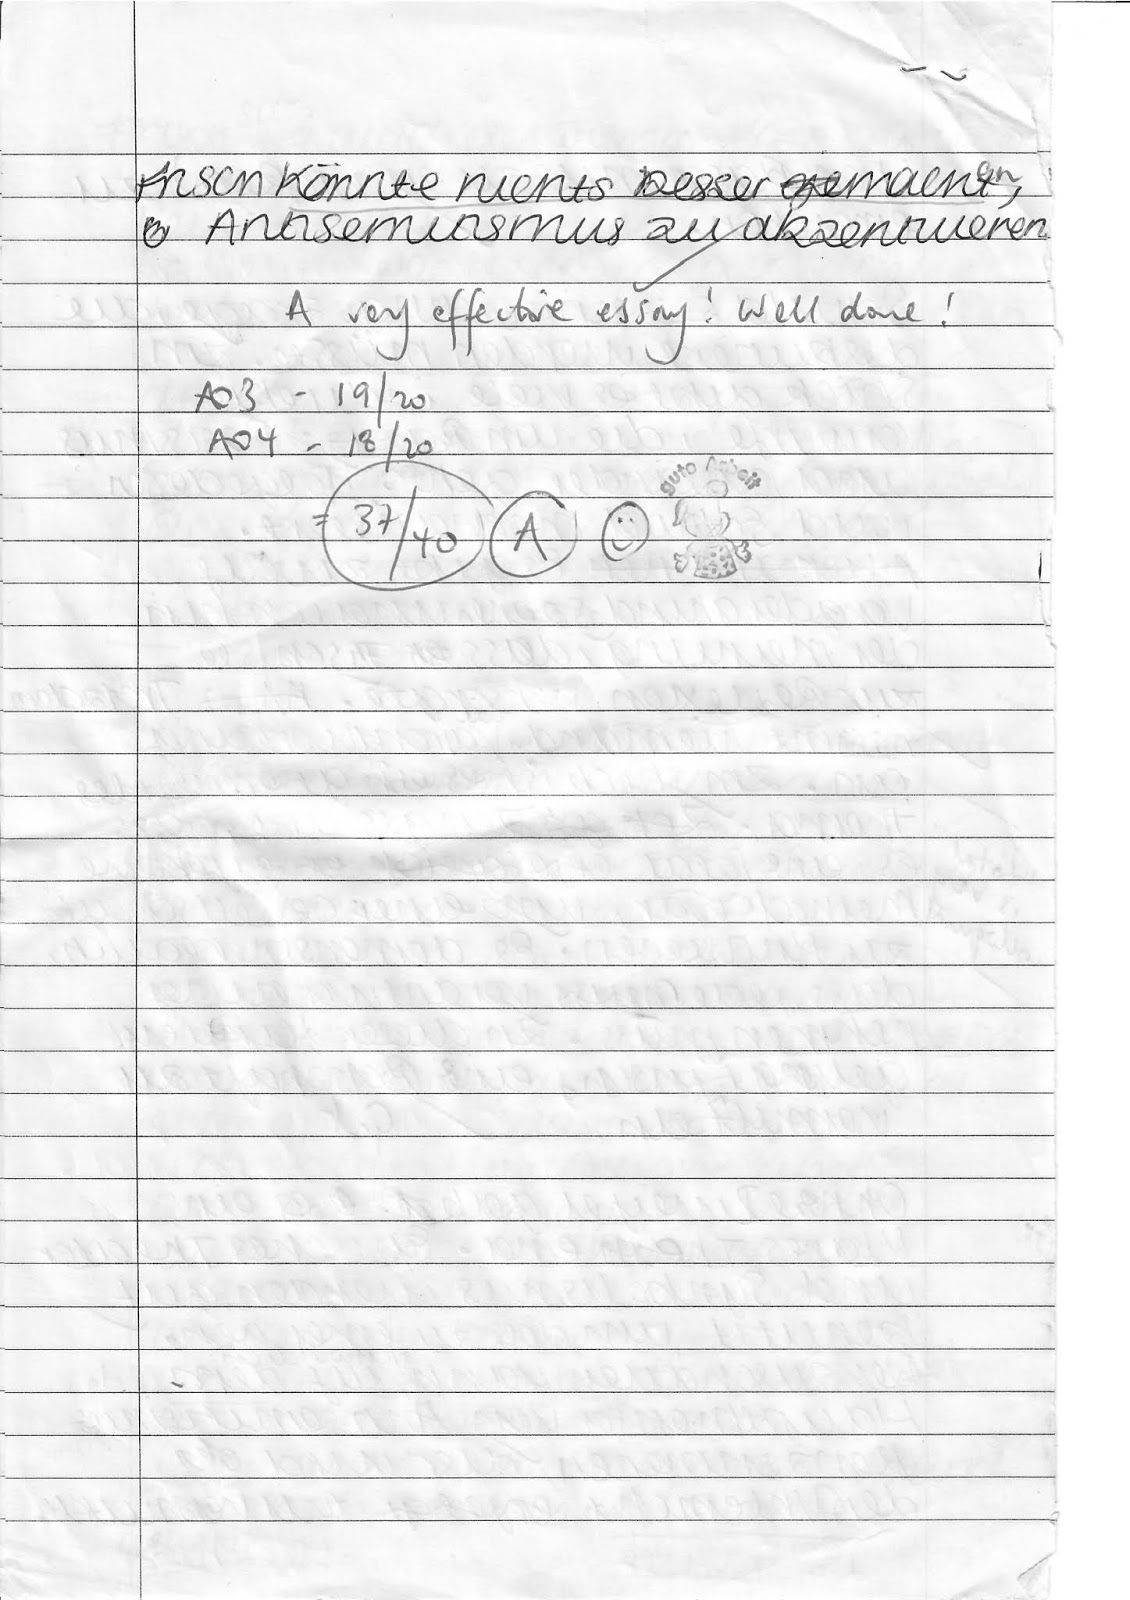 Frisch könnte nichts besser machen,
Antisemitismus zu akzentuieren
A very effective essay! Well done!
AO3 - 19/20
AO4 - 18/20
= 37/40 A
gute Arbeit